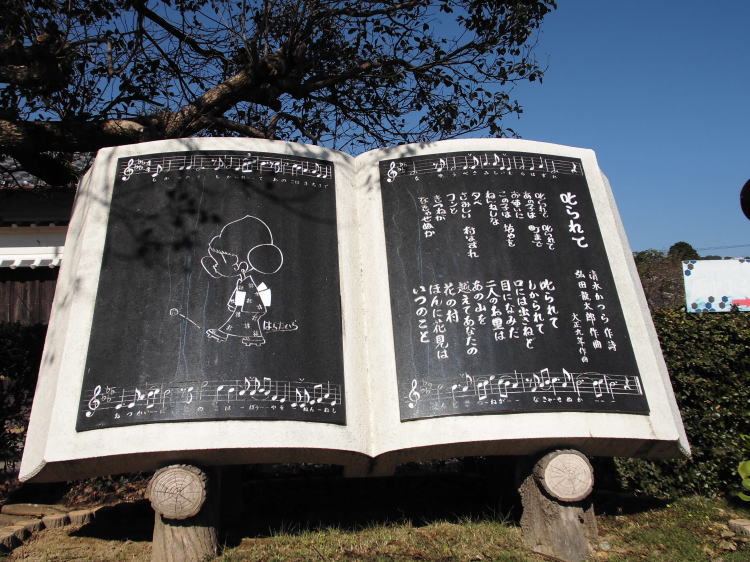 叱られて
清水かつら 作詩
弘田龍太郎 作曲
大正九年作
叱られて 叱られて
あの子は 町まで
お使いに
この子は 坊やを
ねんねしな
夕べ
さみしい 村はずれ
コンと
きつねが
なきゃせぬか
叱られて
しかられて
口には出さねど
目になみだ
二人のお里は
あの山を
越えてあなたの
花の村
ほんに花見は
いつのこと
はらたいら
つかい に このこは ぼう やを ねんねし
なきゃせぬか